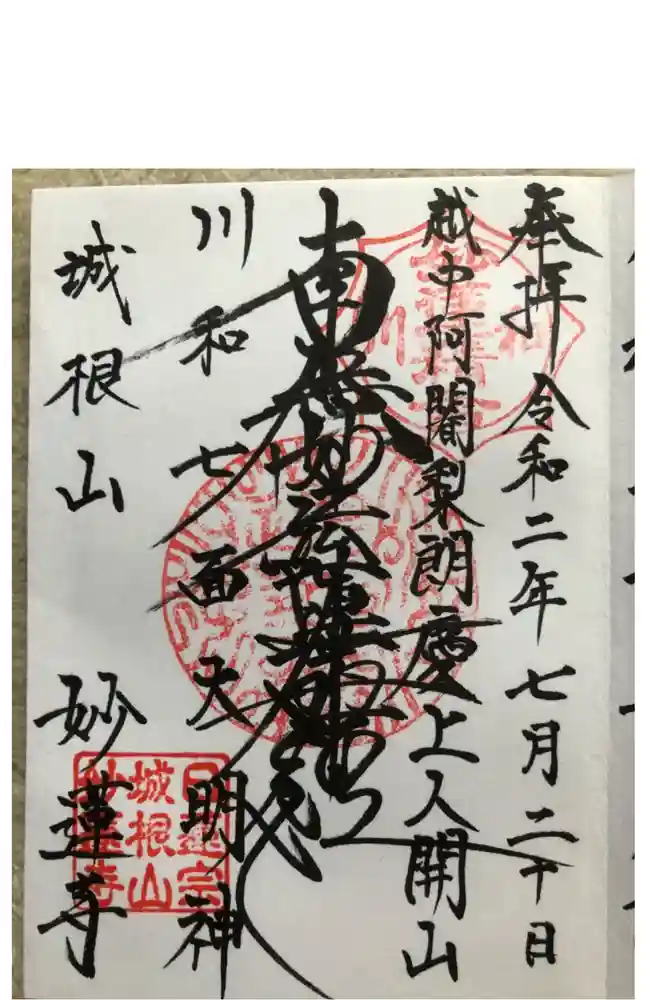 奉拝 令和二年七月二十日
越中阿闍梨朗慶上人開山
南無妙法蓮華経
川和 七面天明神
城根山 妙蓮寺
日蓮宗
城根山
妙蓮寺